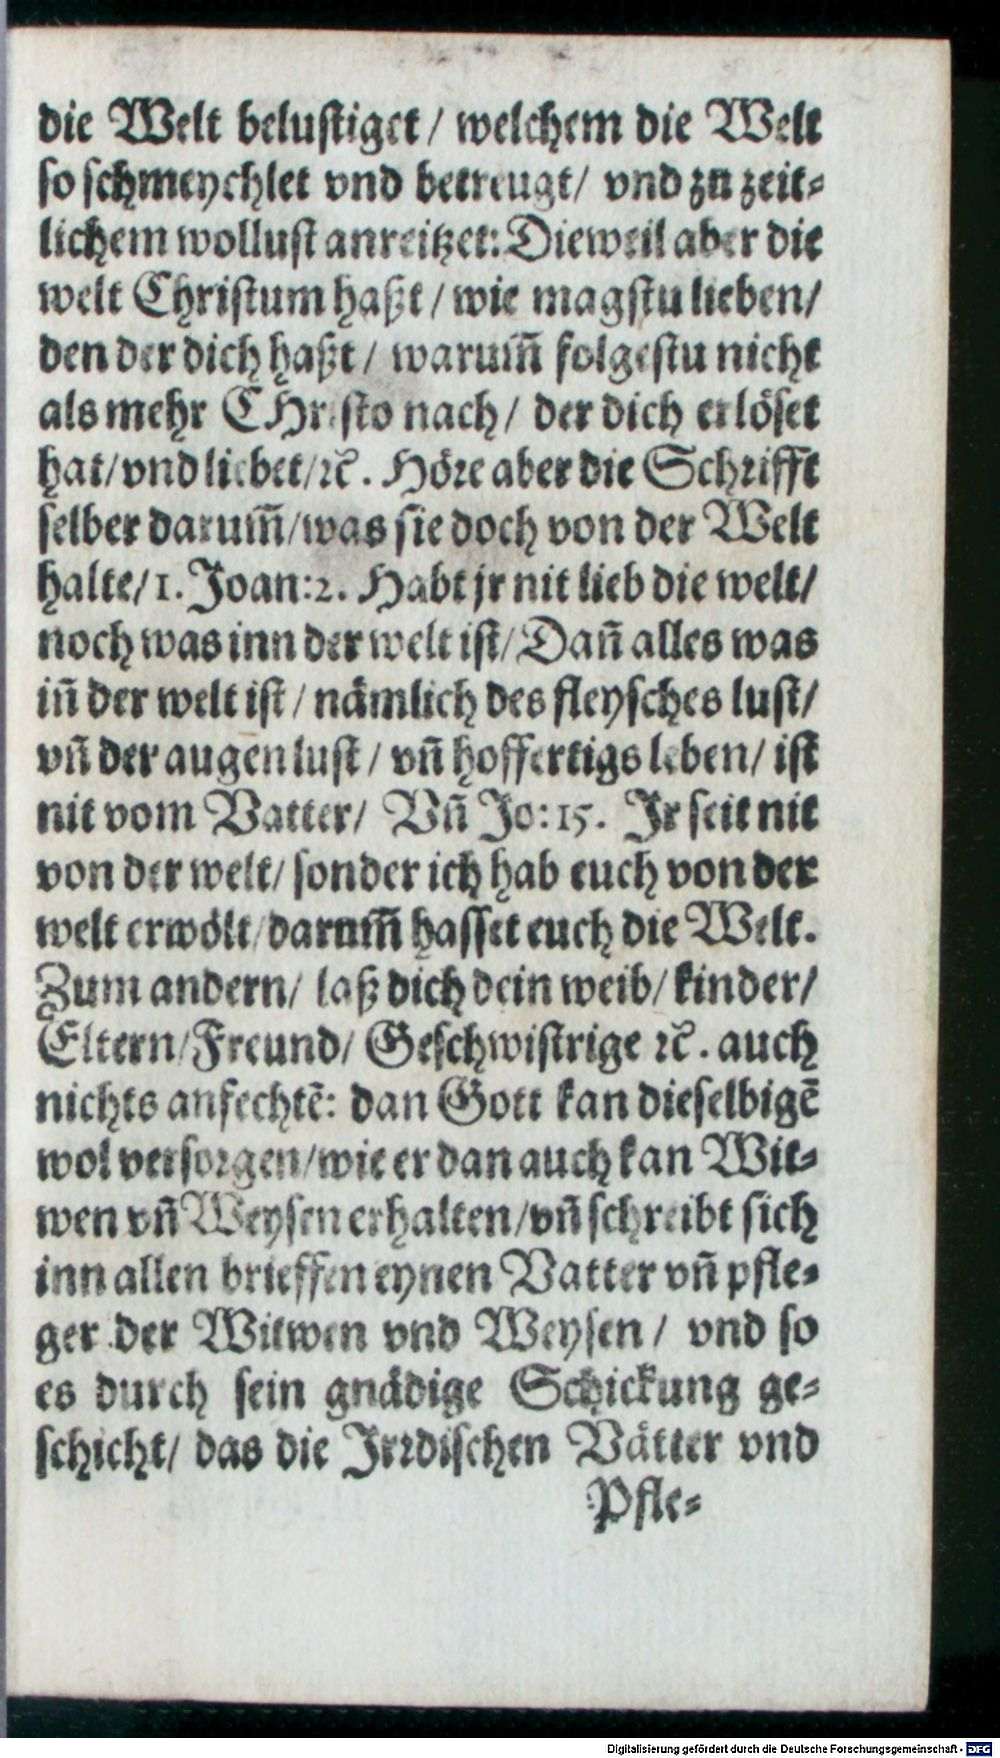 die Welt belustiget / welchem die Welt
so schmeychlet vnd betreugt / vnd zu zeit-
lichem wollust anreitzet: Dieweil aber die
welt Christum haßt / wie magstu lieben /
den der dich haßt / warum̃ folgestu nicht
als mehr CHristo nach / der dich erlöset
hat / vnd liebet / ꝛc. Höre aber die Schrifft
selber darum̃ / was sie doch von der Welt
halte / 1. Joan: 2. Habt jr nit lieb die welt /
noch was inn der welt ist / Dañ alles was
iñ der welt ist / nämlich des fleysches lust /
vñ der augen lust / vñ hoffertigs leben / ist
nit vom Vatter / Vñ Jo: 15. Jr seit nit
von der welt / sonder ich hab euch von der
welt erwölt / darum̃ hasset euch die Welt.
Zum andern / laß dich dein weib / kinder /
Eltern / Freund / Geschwistrige ꝛc. auch
nichts anfechtẽ: dan Gott kan dieselbigẽ
wol versorgen / wie er dan auch kan Wit-
wen vñ Weysen erhalten / vñ schreibt sich
inn allen brieffen eynen Vatter vñ pfle-
ger der Witwen vnd Weysen / vnd so
es durch sein gnädige Schickung ge-
schicht / das die Jrrdischen Vätter vnd
Pfle-
Digitalisierung gefördert durch die Deutsche Forschungsgemeinschaft - DFG